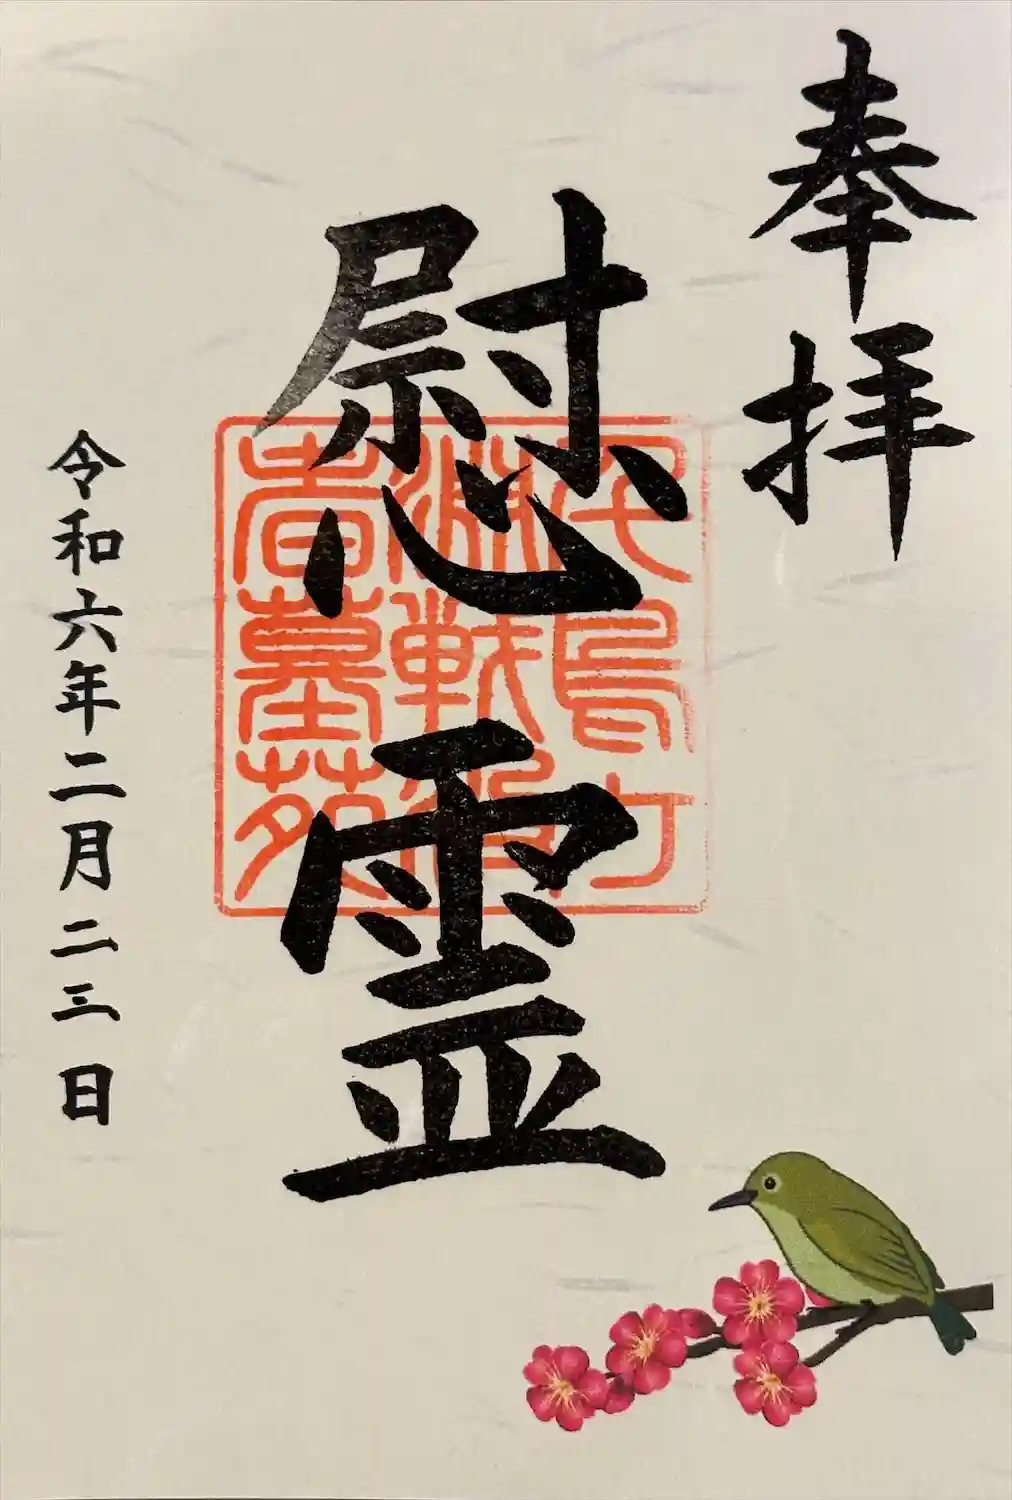 奉拝
慰霊
千鳥ケ
淵戦没
者墓苑
令和六年二月二三日